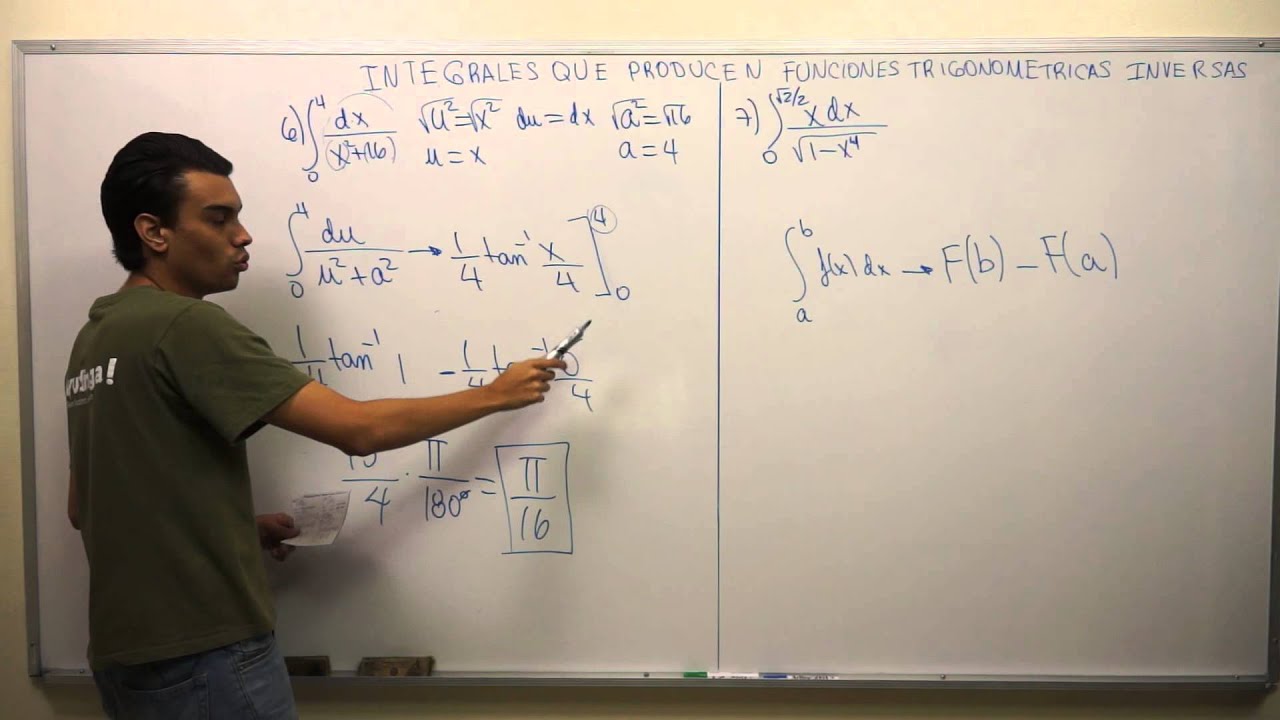 INTEGRALES QUE PRODUCEN FUNCIONES TRIGONOMETRICAS INVERSAS
6) ∫₀⁴ dx/(x²+16) √u²=√x² du=dx √a²=√16
u=x a=4
∫₀⁴ du/(u²+a²) → 1/4 tan⁻¹ x/4 ]₀⁴
tan⁻¹ 1 - 1/4 0/4
/4 · π/180° = π/16
7) ∫₀^(√2/2) x dx/√(1-x⁴)
∫ₐᵇ f(x) dx → F(b) - F(a)